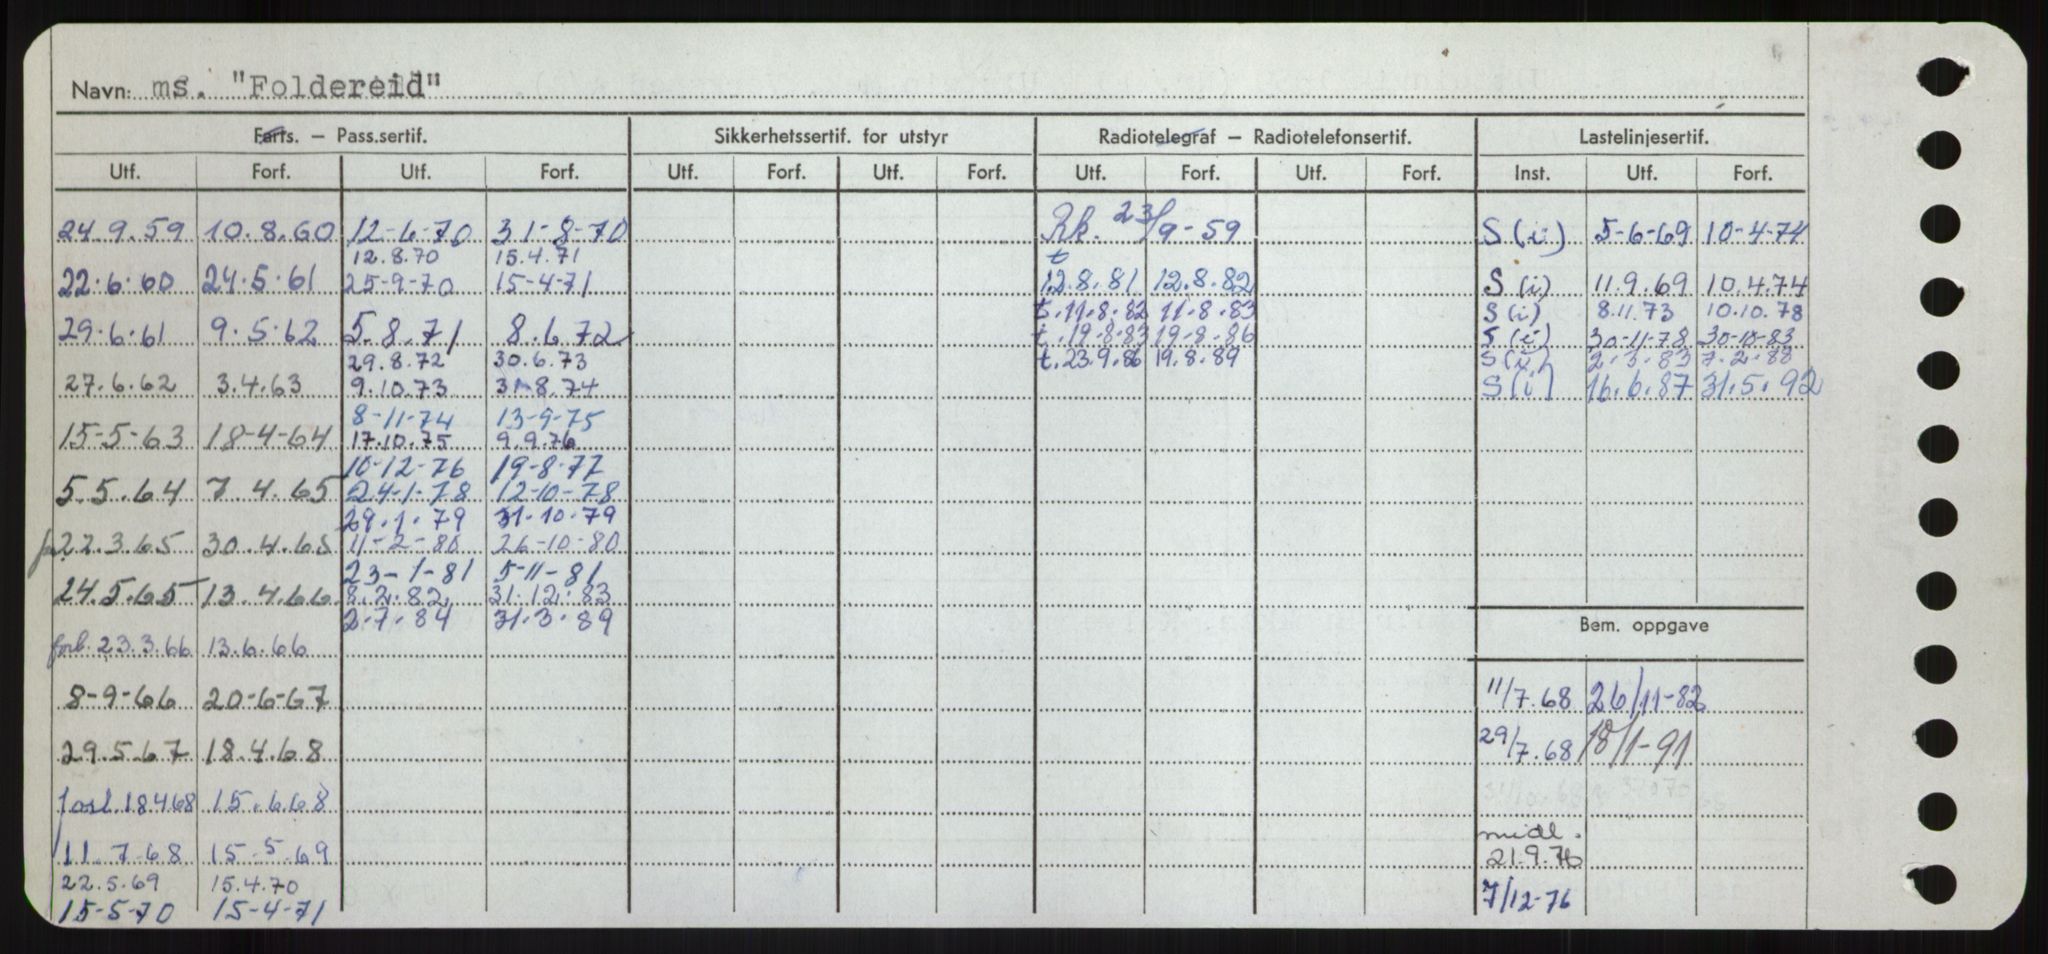 Navn: ms. "Foldereid"
Farts. – Pass.sertif. Sikkerhetssertif. for utstyr Radiotelegraf – Radiotelefonsertif. Lastelinjesertif.
Utf. Forf. Utf. Forf. Utf. Forf. Utf. Forf. Utf. Forf. Utf. Forf. Inst. Utf. Forf.
24.9.59 10.8.60 12-6-70 31-8-70 Rk. 23/9-59 S (i) 5-6-69 10-4-74
12.8.70 15.4.71 t
22.6.60 24.5.61 25-9-70 15-4-71 12.8.81 12.8.82 S (i) 11.9.69 10.4.74
t.11.8.82 11.8.83 S (i) 8.11.73 10.10.78
29.6.61 9.5.62 5.8.71 8.6.72 t.19.8.83 19.8.86 S (i) 30-11-78 30-10-83
29.8.72 30.6.73 t.23.9.86 19.8.89 S (i) 2.3.83 7.2.88
27.6.62 3.4.63 9.10.73 31-8.74 S (i) 16.6.87 31.5.92
8-11-74 13-9-75
15-5-63 18-4-64 17.10.75 9.9.76
10-12-76 19-8-77
5.5.64 7.4.65 24-1-78 12-10-78
29.1.79 31.10.79
22.3.65 30.4.65 11-2-80 26-10-80
23-1-81 5-11-81
24.5.65 13.4.66 8.2.82 31.12.83
2.7.84 31.3.89
Bem. oppgave
forl. 23.3.66 13.6.66
8-9-66 20-6-67 11/7.68 26/11-82
29.5.67 18.4.68 29/7.68 18/1-91
forl 18468 15.6.68
midl.
11.7-68 15-5-69 21.9.76
22.5.69 15.4.70
15-5-70 15-4-71 7/12-76